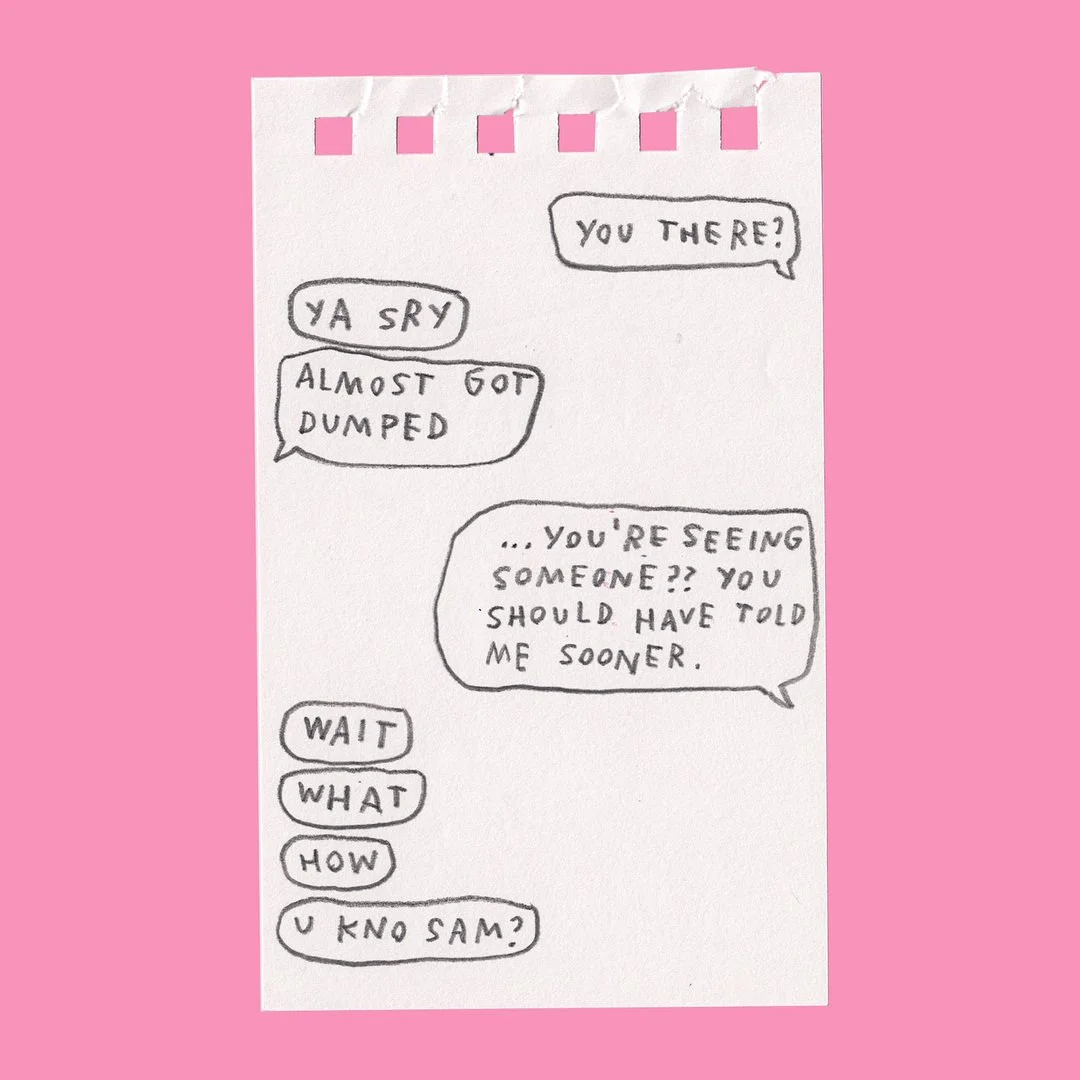 YOU THERE?
YA SRY
ALMOST GOT
DUMPED
...YOU'RE SEEING
SOMEONE?? YOU
SHOULD HAVE TOLD
ME SOONER.
WAIT
WHAT
HOW
U KNO SAM?